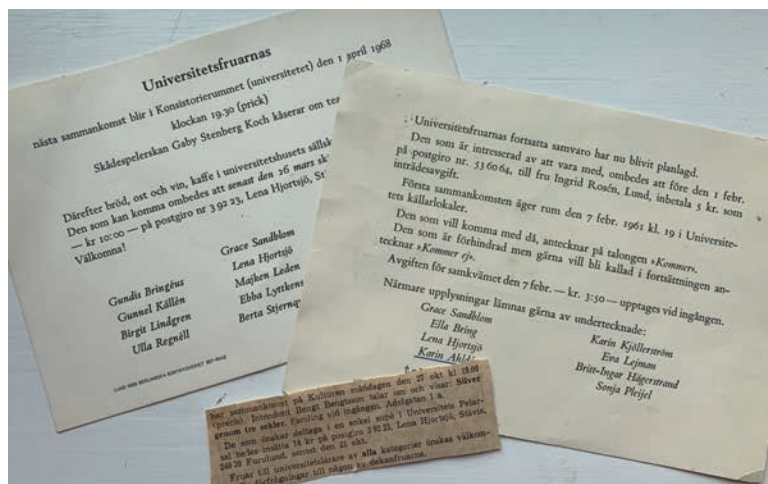 Universitetsfruarnas
nästa sammankomst blir i Konsistorierummet (universitetet) den 1 april 1968
klockan 19.30 (prick)
Skådespelerskan Gaby Stenberg Koch kåserar om
Därefter bröd, ost och vin, kaffe i universitetshusets
Den som kan komma ombedes att senast den 26 mars
— kr 10:00 — på postgiro nr 3 92 23, Lena Hjortsjö,
Välkomna!
Gundis Bringéus
Gunnel Källén
Birgit Lindgren
Ulla Regnéll
Grace Sandblom
Lena Hjortsjö
Majken Leden
Ebba Lyttkens
Berta
Universitetsfruarnas fortsatta samvaro har nu blivit planlagd.
Den som är intresserad av att vara med, ombedes att före den 1 febr.
på postgiro nr. 53 60 64, till fru Ingrid Rosén, Lund, inbetala 5 kr. som
inträdesavgift.
Första sammankomsten äger rum den 7 febr. 1961 kl. 19 i Universite-
tets källarlokaler.
Den som vill komma med då, antecknar på talongen »Kommer».
Den som är förhindrad men gärna vill bli kallad i fortsättningen an-
tecknar »Kommer ej».
Avgiften för samkvämet den 7 febr. — kr. 3:50 — upptages vid ingången.
Närmare upplysningar lämnas gärna av undertecknade:
Grace Sandblom
Ella Bring
Lena Hjortsjö
Karin
Karin Kjöllerström
Eva Lejman
Britt-Ingar Hägerstrand
Sonja Pleijel
har sammankomst på Kulturen måndagen den 27 okt kl 19.00
(precis). Intendent Bengt Bengtsson talar om och visar: Silver
genom tre sekler. Samling vid ingången, Adelgatan 1 a.
De som önskar deltaga i en enkel supé i Universitets Pelar-
sal bedes insätta 14 kr på postgiro 3 92 23, Lena Hjortsjö, Stävie,
240 20 Furulund, senast den 21 okt.
Fruar till universitetslärare av alla kategorier önskas välkom-
förfrågningar till någon av dekanfruarna.